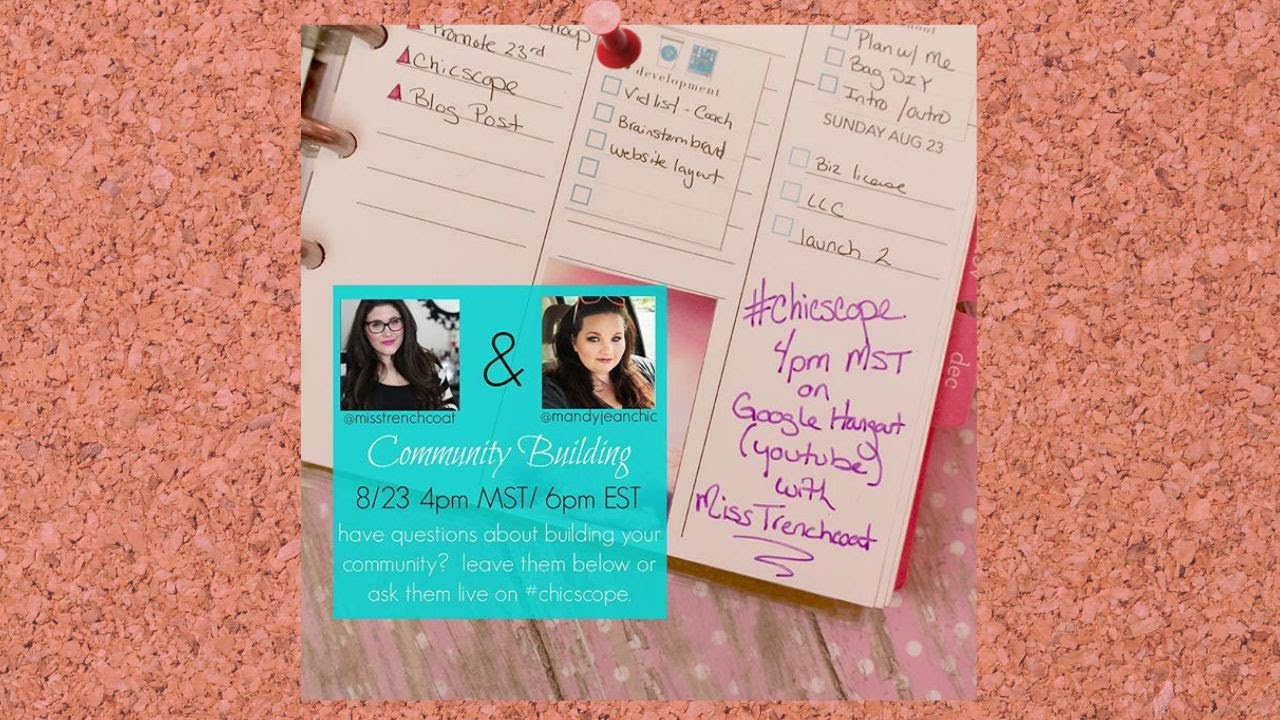 Group
Promote 23rd
Chicscope
Blog Post
development
Vid list - Coach
Brainstorm brand
website layout
Plan w/ Me
Bag DIY
Intro/outro
SUNDAY AUG 23
Biz license
LLC
launch 2
#chicscope
4pm MST
on
Google Hangout
(youtube)
with
Miss Trenchcoat
dec
&
@misstrenchcoat
@mandyjeanchic
Community Building
8/23 4pm MST/ 6pm EST
have questions about building your
community? leave them below or
ask them live on #chicscope.